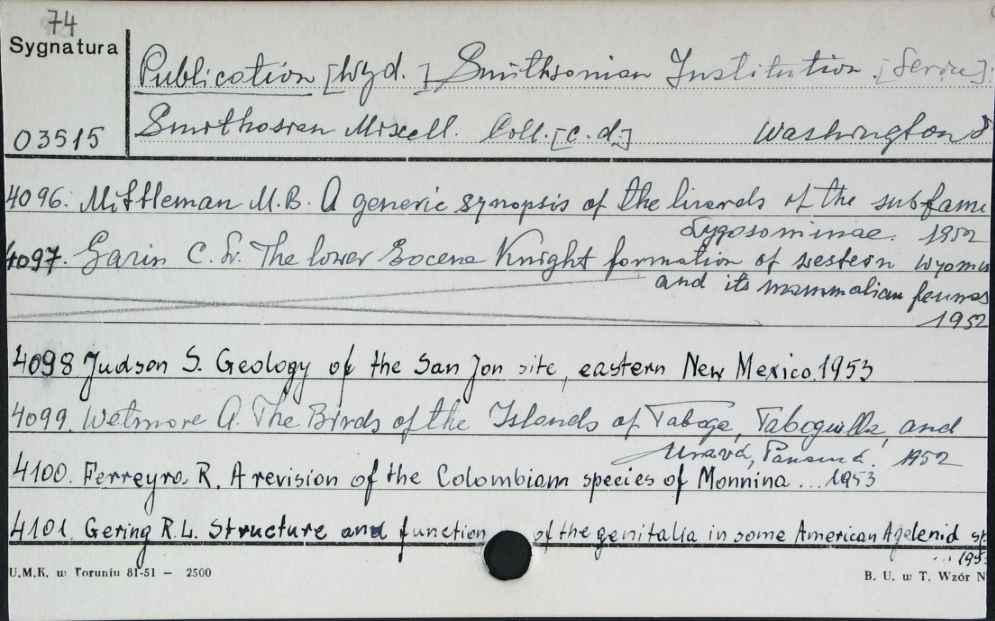 74
Sygnatura
Publication [Wyd.] Smithsonian Institution [Seria]:
03515
Smithosian Miscell. Coll. [c.d.] Washington
4096. Mittleman M.B. A generic synopsis of the lizards of the subfami
Lygosominae. 1952
4097. Gazin C. L. The lower Eocene Knight formation of western Wyomin
and its mammalian faunas
1952
4098 Judson S. Geology of the San Jon site, eastern New Mexico. 1953
4099. Wetmore A. The Birds of the Islands of Taboga, Taboguilla, and
Uravá, Panamá. 1952
4100. Ferreyra R. A revision of the Colombian species of Monnina ... 1953
4101. Gering R.L. Structure and function of the genitalia in some American Agelenid sp
... 195
U.M.K. w Toruniu 81-51 — 2500
B. U. w T. Wzór N